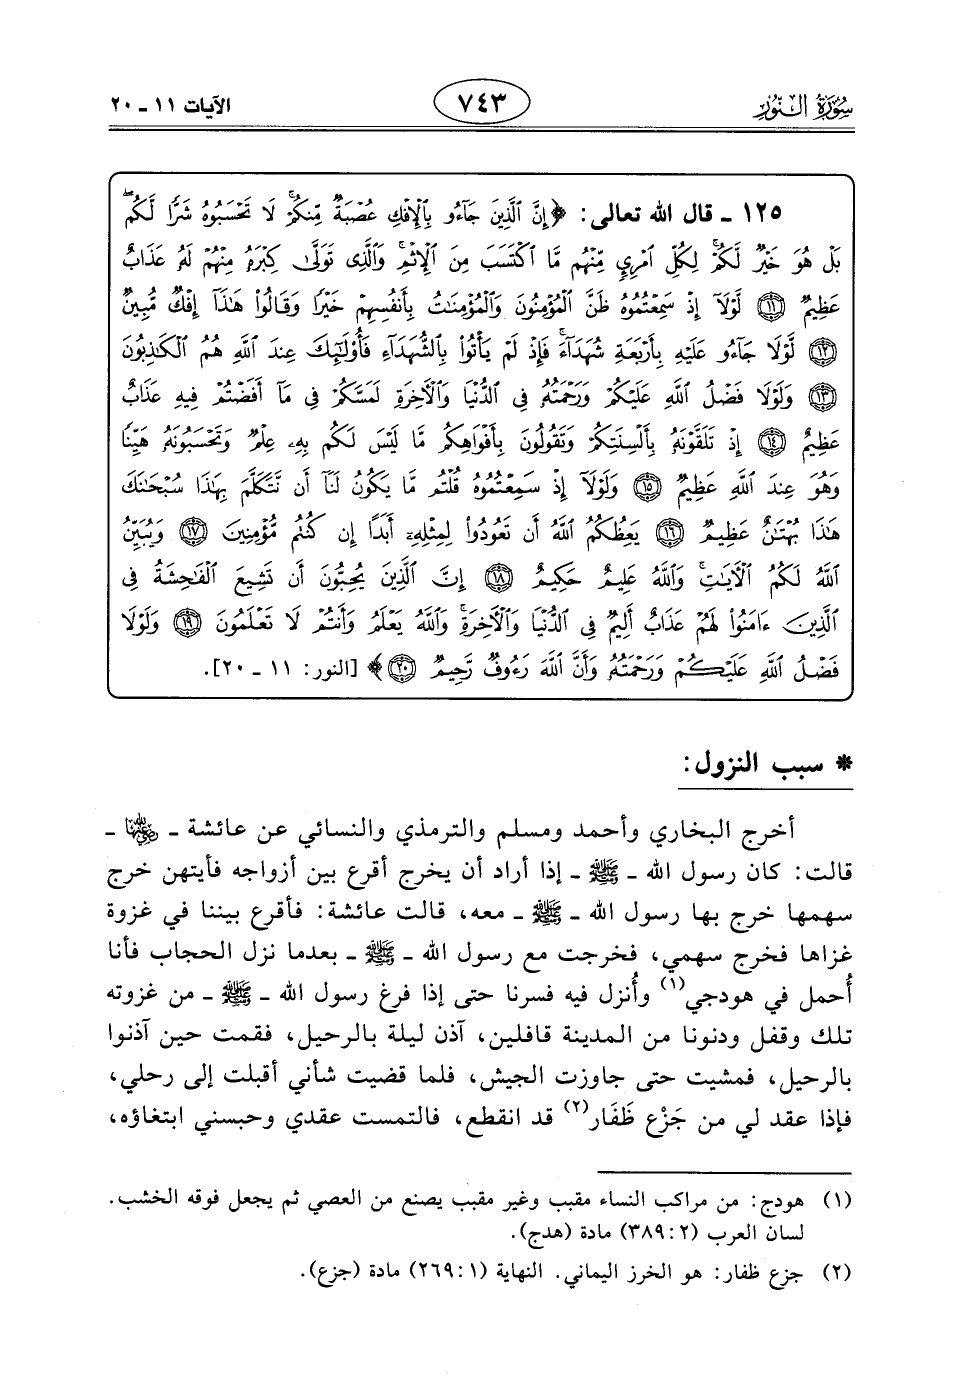 سُورَةُ النُّورِ ٧٤٣ الآيات ١١ ـ ٢٠
١٢٥ ـ قال الله تعالى: ﴿إِنَّ الَّذِينَ جَآءُو بِالْإِفْكِ عُصْبَةٌ مِّنكُمْ ۚ لَا تَحْسَبُوهُ شَرًّا لَّكُم ۖ
بَلْ هُوَ خَيْرٌ لَّكُمْ ۚ لِكُلِّ امْرِئٍ مِّنْهُم مَّا اكْتَسَبَ مِنَ الْإِثْمِ ۚ وَالَّذِى تَوَلَّىٰ كِبْرَهُ مِنْهُمْ لَهُ عَذَابٌ
عَظِيمٌ ﴿١١﴾ لَّوْلَآ إِذْ سَمِعْتُمُوهُ ظَنَّ الْمُؤْمِنُونَ وَالْمُؤْمِنَٰتُ بِأَنفُسِهِمْ خَيْرًا وَقَالُوا۟ هَٰذَآ إِفْكٌ مُّبِينٌ
﴿١٢﴾ لَّوْلَا جَآءُو عَلَيْهِ بِأَرْبَعَةِ شُهَدَآءَ ۚ فَإِذْ لَمْ يَأْتُوا۟ بِالشُّهَدَآءِ فَأُو۟لَٰٓئِكَ عِندَ اللَّهِ هُمُ الْكَٰذِبُونَ
﴿١٣﴾ وَلَوْلَا فَضْلُ اللَّهِ عَلَيْكُمْ وَرَحْمَتُهُ فِى الدُّنْيَا وَالْآخِرَةِ لَمَسَّكُمْ فِى مَآ أَفَضْتُمْ فِيهِ عَذَابٌ
عَظِيمٌ ﴿١٤﴾ إِذْ تَلَقَّوْنَهُ بِأَلْسِنَتِكُمْ وَتَقُولُونَ بِأَفْوَاهِكُم مَّا لَيْسَ لَكُم بِهِۦ عِلْمٌ وَتَحْسَبُونَهُ هَيِّنًا
وَهُوَ عِندَ اللَّهِ عَظِيمٌ ﴿١٥﴾ وَلَوْلَآ إِذْ سَمِعْتُمُوهُ قُلْتُم مَّا يَكُونُ لَنَآ أَن نَّتَكَلَّمَ بِهَٰذَا سُبْحَٰنَكَ
هَٰذَا بُهْتَٰنٌ عَظِيمٌ ﴿١٦﴾ يَعِظُكُمُ اللَّهُ أَن تَعُودُوا۟ لِمِثْلِهِۦٓ أَبَدًا إِن كُنتُم مُّؤْمِنِينَ ﴿١٧﴾ وَيُبَيِّنُ
اللَّهُ لَكُمُ الْآيَٰتِ ۚ وَاللَّهُ عَلِيمٌ حَكِيمٌ ﴿١٨﴾ إِنَّ الَّذِينَ يُحِبُّونَ أَن تَشِيعَ الْفَٰحِشَةُ فِى
الَّذِينَ ءَامَنُوا۟ لَهُمْ عَذَابٌ أَلِيمٌ فِى الدُّنْيَا وَالْآخِرَةِ ۚ وَاللَّهُ يَعْلَمُ وَأَنتُمْ لَا تَعْلَمُونَ ﴿١٩﴾ وَلَوْلَا
فَضْلُ اللَّهِ عَلَيْكُمْ وَرَحْمَتُهُ وَأَنَّ اللَّهَ رَءُوفٌ رَّحِيمٌ ﴿٢٠﴾﴾ [النور: ١١ ـ ٢٠].
* سبب النزول:
أخرج البخاري وأحمد ومسلم والترمذي والنسائي عن عائشة ـ رضي الله عنها ـ
قالت: كان رسول الله ـ ﷺ ـ إذا أراد أن يخرج أقرع بين أزواجه فأيتهن خرج
سهمها خرج بها رسول الله ـ ﷺ ـ معه، قالت عائشة: فأقرع بيننا في غزوة
غزاها فخرج سهمي، فخرجت مع رسول الله ـ ﷺ ـ بعدما نزل الحجاب فأنا
أُحمل في هودجي(١) وأُنزل فيه فسرنا حتى إذا فرغ رسول الله ـ ﷺ ـ من غزوته
تلك وقفل ودنونا من المدينة قافلين، آذن ليلة بالرحيل، فقمت حين آذنوا
بالرحيل، فمشيت حتى جاوزت الجيش، فلما قضيت شأني أقبلت إلى رحلي،
فإذا عقد لي من جَزْع ظَفَار(٢) قد انقطع، فالتمست عقدي وحبسني ابتغاؤه،
(١) هودج: من مراكب النساء مقبب وغير مقبب يصنع من العصي ثم يجعل فوقه الخشب.
لسان العرب (٣٨٩:٢) مادة (هدج).
(٢) جزع ظفار: هو الخرز اليماني. النهاية (٢٦٩:١) مادة (جزع).